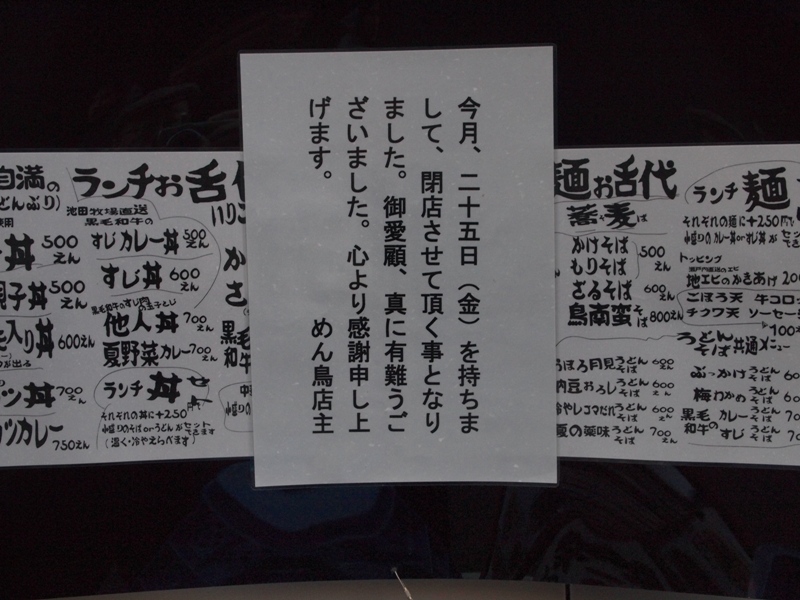 今月、二十五日（金）を持ちま
して、閉店させて頂く事となり
ました。御愛顧、真に有難うご
ざいました。心より感謝申し上
げます。
めん鳥店主
ランチお舌
池田牧場直送
黒毛和牛の
すじカレー丼 500えん
すじ丼 600えん
他人丼 700えん
夏野菜カレー 700えん
ランチ丼セット
それぞれの丼に+250円で
中盛りのそばorうどんがセットできます
(温・冷やえらべます)
自満の
どんぶり)
丼 500えん
親子丼 500えん
入り丼 600えん
ツ丼 700えん
カツカレー
750えん
いりこ
黒毛
和牛
麺お舌代
蕎麦は
かけそば
もりそば
500えん
ざるそば 600えん
鳥南蛮そば 800えん
おぼろ月見うどんそば 600えん
納豆おろしうどんそば 600えん
冷やしゴマだれうどんそば 600えん
夏の薬味うどんそば 700えん
ランチ麺
それぞれの麺に+250円で
中盛りのカレー丼orすじ丼がセット
トッピング
地エビのかきあげ 200
ごぼう天 牛コロッ
チクワ天 ソーセージ
100
うどんそば共通メニュー
ぶっかけうどんそば
梅わかめうどんそば
黒毛和牛の
カレーうどんそば
すじうどんそば